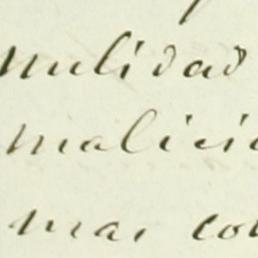 nulidad
malici
mas co